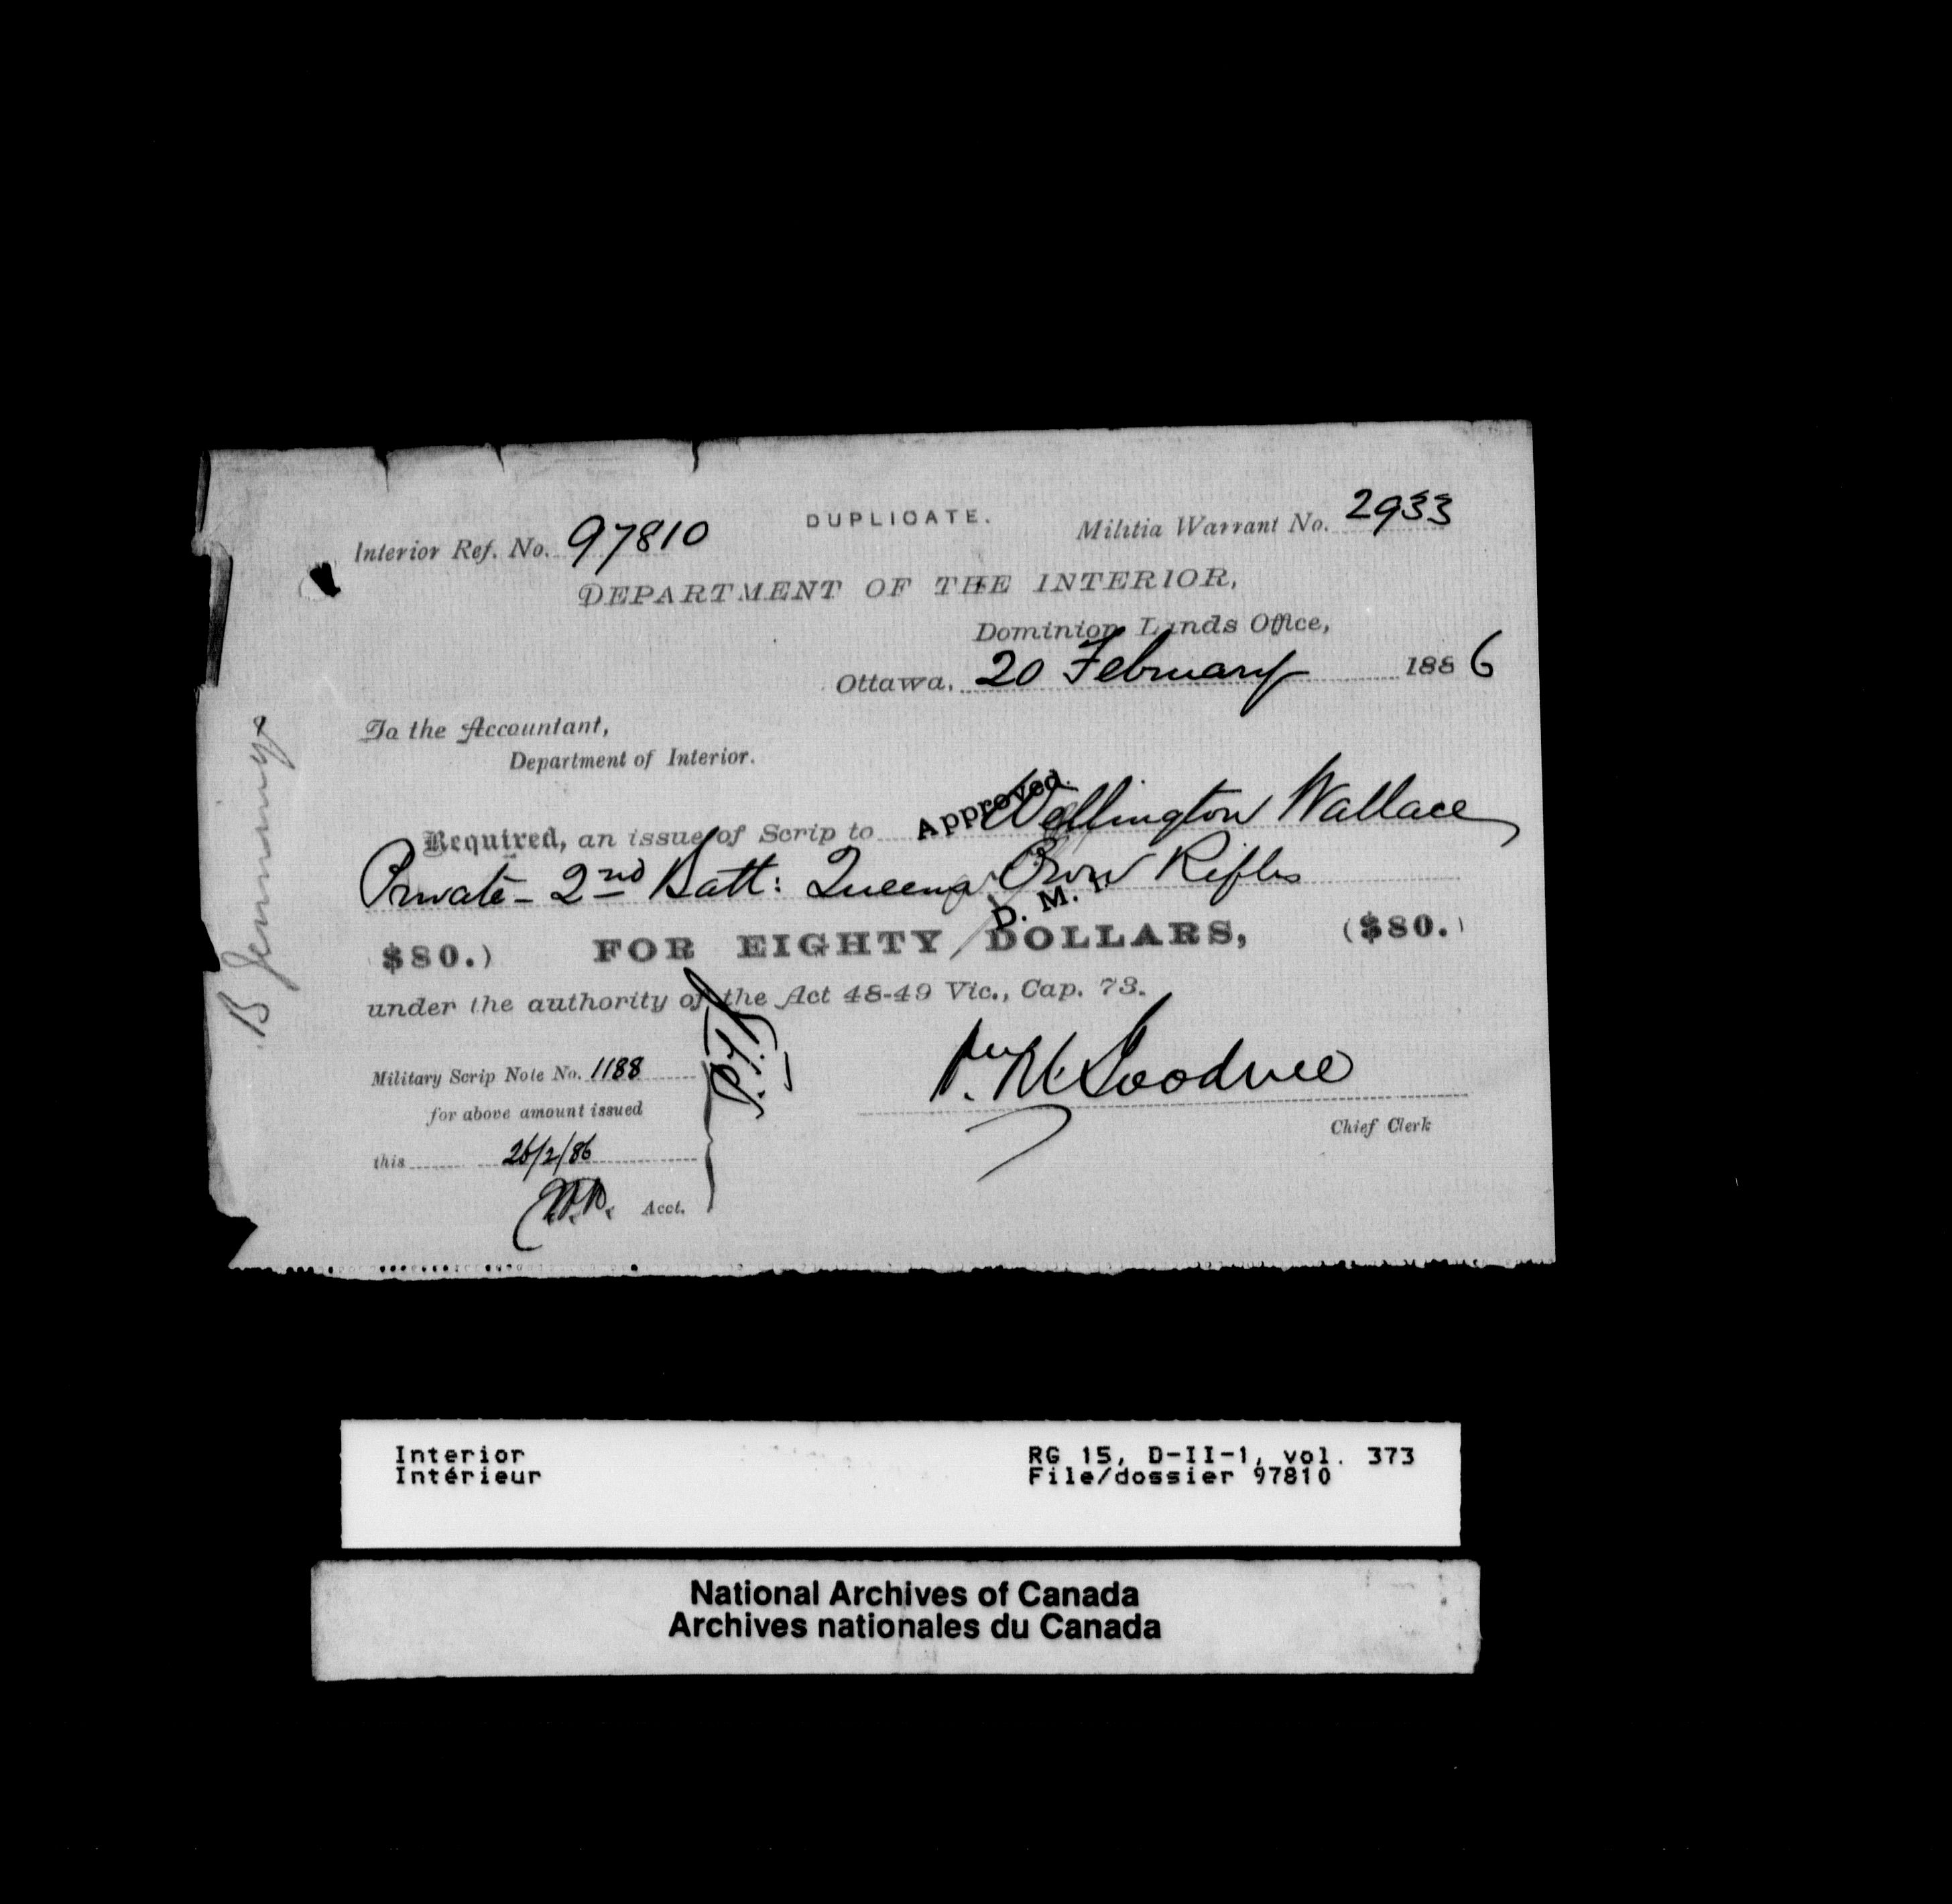 DUPLICATE.
Interior Ref. No. 97810
Militia Warrant No. 2933
DEPARTMENT OF THE INTERIOR,
Dominion Lands Office,
Ottawa, 20 February 1886
To the Accountant,
Department of Interior.
Approved.
Required, an issue of Scrip to Wellington Wallace
Private - 2nd Batt: Queens Own Rifles
D. M. I.
$80.) FOR EIGHTY DOLLARS, ($80.)
under the authority of the Act 48-49 Vic., Cap. 73.
Military Scrip Note No. 1188
for above amount issued
this 26/2/86
Acct.
Chief Clerk
B Jennings
Interior
Intérieur
RG 15, D-II-1, vol. 373
File/dossier 97810
National Archives of Canada
Archives nationales du Canada